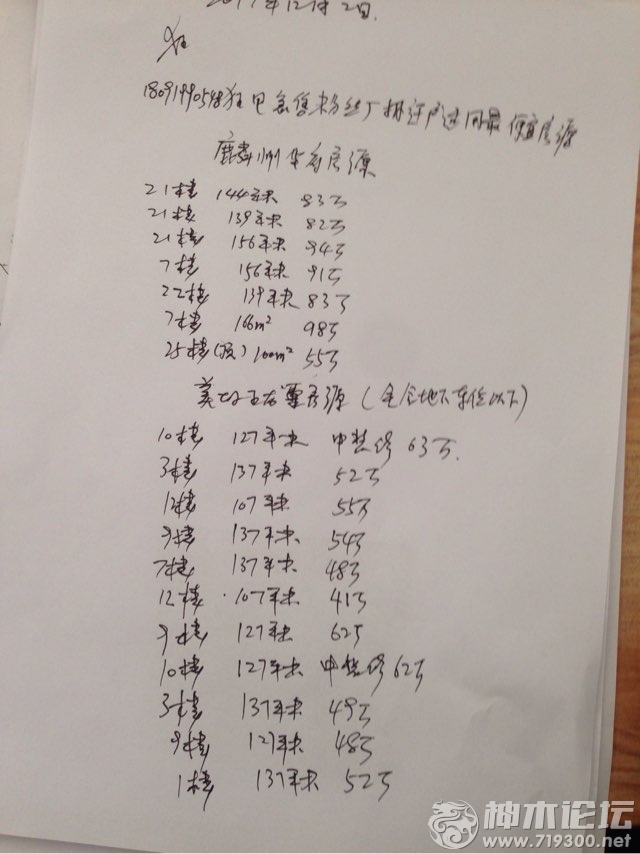 年12月2日
18091990548 电 急售 粉丝厂拆迁户 同最便宜房源
麟州华府房源
21楼 144平米 83万
21楼 139平米 82万
21楼 156平米 94万
7楼 156平米 91万
22楼 139平米 83万
7楼 166m² 98万
25楼(顶) 100m² 55万
房源(全含地下车位以下)
10楼 127平米 中装修 63万.
3楼 137平米 52万
12楼 107平米 55万
9楼 137平米 54万
7楼 137平米 48万
12楼 107平米 41万
9楼 127平米 62万
10楼 127平米 中装修 62万
3楼 137平米 49万
9楼 127平米 48万
1楼 137平米 52万
神木论坛
www.719300.net